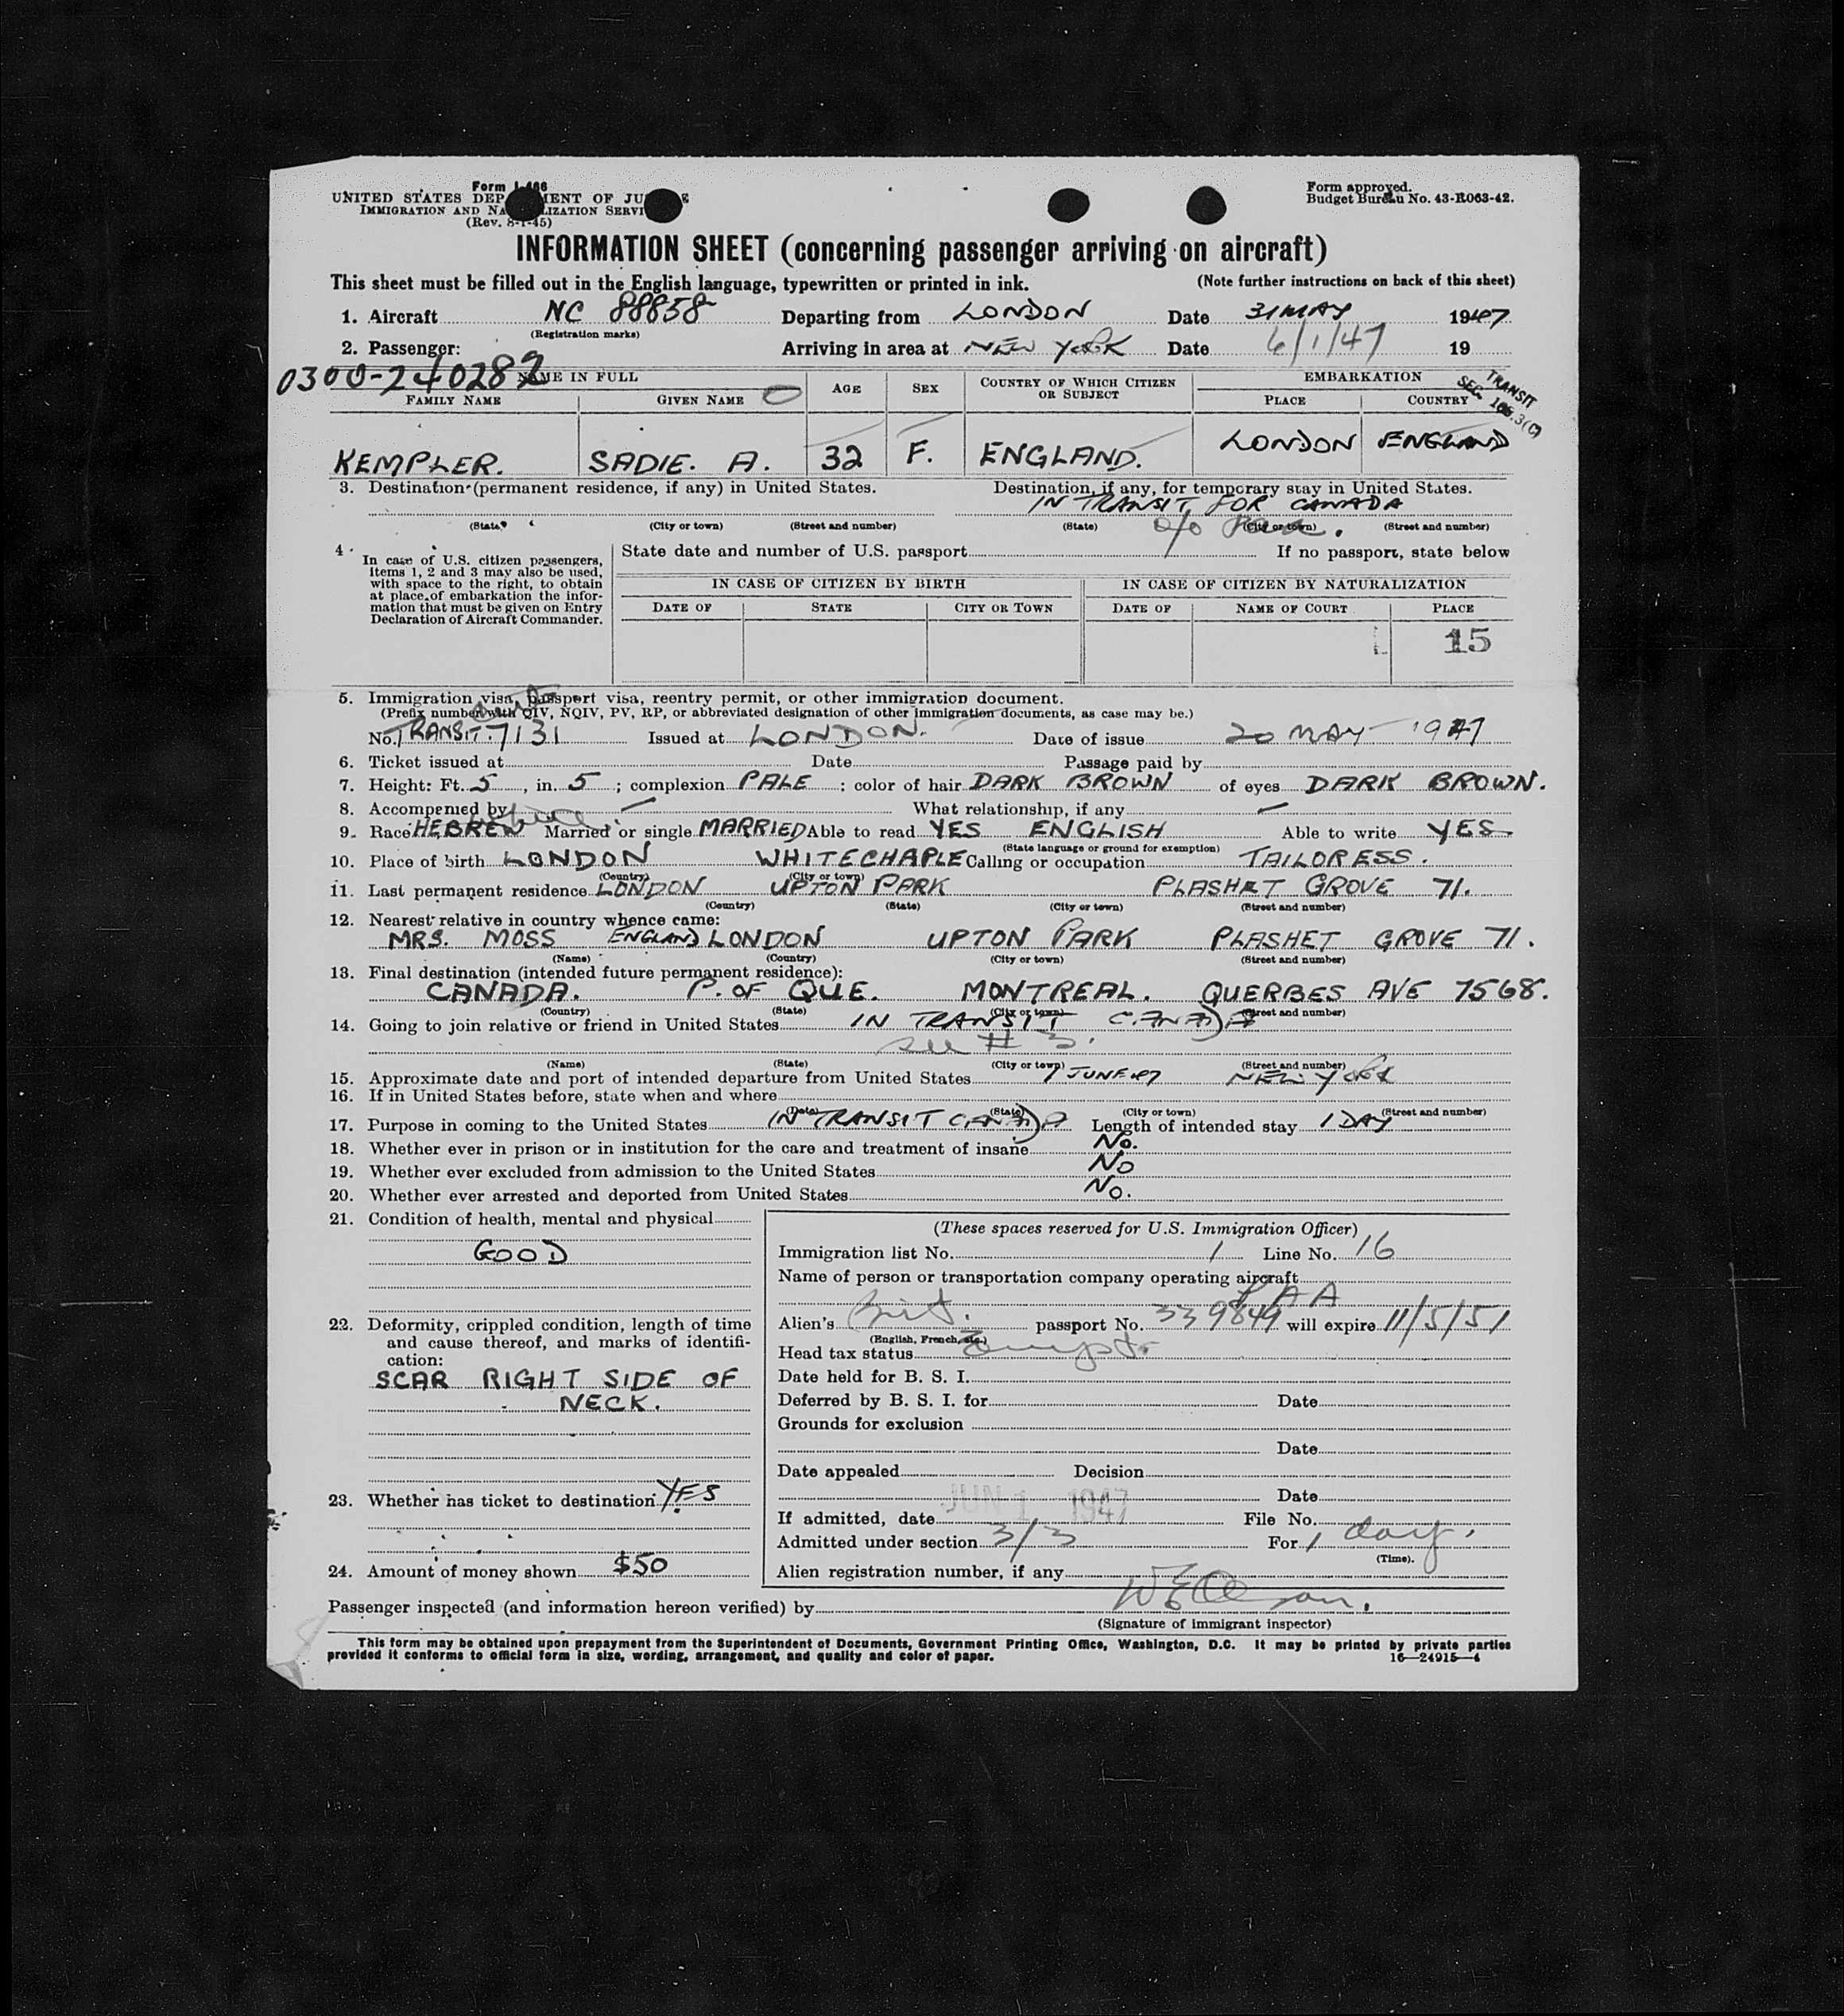 Form I-466
UNITED STATES DEPARTMENT OF JUSTICE
IMMIGRATION AND NATURALIZATION SERVICE
(Rev. 8-1-45)
Form approved.
Budget Bureau No. 43-R063-42.
INFORMATION SHEET (concerning passenger arriving on aircraft)
This sheet must be filled out in the English language, typewritten or printed in ink. (Note further instructions on back of this sheet)
1. Aircraft NC 88858 Departing from LONDON Date 31 MAY 1947
(Registration marks)
2. Passenger: Arriving in area at NEW YORK Date 6/1/47 19
0300-240282
NAME IN FULL AGE SEX COUNTRY OF WHICH CITIZEN OR SUBJECT EMBARKATION
FAMILY NAME GIVEN NAME PLACE COUNTRY
TRANSIT
SEC. 3(C)
KEMPLER. SADIE. A. 32 F. ENGLAND. LONDON ENGLAND
3. Destination (permanent residence, if any) in United States. Destination, if any, for temporary stay in United States.
IN TRANSIT FOR CANADA
(State) (City or town) (Street and number) (State) (City or town) (Street and number)
4. In case of U.S. citizen passengers, items 1, 2 and 3 may also be used, with space to the right, to obtain at place of embarkation the information that must be given on Entry Declaration of Aircraft Commander.
State date and number of U.S. passport If no passport, state below
IN CASE OF CITIZEN BY BIRTH IN CASE OF CITIZEN BY NATURALIZATION
DATE OF STATE CITY OR TOWN DATE OF NAME OF COURT PLACE
15
5. Immigration visa, passport visa, reentry permit, or other immigration document.
(Prefix number with QIV, NQIV, PV, RP, or abbreviated designation of other immigration documents, as case may be.)
No. TRANSIT. 7131 Issued at LONDON. Date of issue 20 MAY 1947
6. Ticket issued at Date Passage paid by
7. Height: Ft. 5, in. 5; complexion PALE; color of hair DARK BROWN of eyes DARK BROWN.
8. Accompanied by — What relationship, if any —
9. Race HEBREW Married or single MARRIED Able to read YES ENGLISH Able to write YES
(State language or ground for exemption)
10. Place of birth LONDON WHITECHAPLE Calling or occupation TAILORESS.
(Country) (City or town)
11. Last permanent residence LONDON UPTON PARK PLASHET GROVE 71.
(Country) (State) (City or town) (Street and number)
12. Nearest relative in country whence came:
MRS. MOSS ENGLAND LONDON UPTON PARK PLASHET GROVE 71.
(Name) (Country) (City or town) (Street and number)
13. Final destination (intended future permanent residence):
CANADA. P. OF QUE. MONTREAL. QUERBES AVE 7568.
(Country) (State) (City or town) (Street and number)
14. Going to join relative or friend in United States IN TRANSIT CANADA
see # 3.
(Name) (State) (City or town) (Street and number)
15. Approximate date and port of intended departure from United States 1 JUNE 47 NEW YORK
16. If in United States before, state when and where
(Date) (State) (City or town) (Street and number)
17. Purpose in coming to the United States IN TRANSIT CANADA Length of intended stay 1 DAY
18. Whether ever in prison or in institution for the care and treatment of insane No.
19. Whether ever excluded from admission to the United States No
20. Whether ever arrested and deported from United States No.
21. Condition of health, mental and physical
GOOD
22. Deformity, crippled condition, length of time and cause thereof, and marks of identification:
SCAR RIGHT SIDE OF
NECK.
23. Whether has ticket to destination YES
24. Amount of money shown $50
(These spaces reserved for U.S. Immigration Officer)
Immigration list No. 1 Line No. 16
Name of person or transportation company operating aircraft
PAA
Alien's Brit. passport No. 339849 will expire 11/5/51
(English, French, etc.)
Head tax status Exempt
Date held for B. S. I.
Deferred by B. S. I. for Date
Grounds for exclusion
Date
Date appealed Decision
Date
If admitted, date JUN 1 1947 File No.
Admitted under section 3/3 For 1 day.
(Time).
Alien registration number, if any
Passenger inspected (and information hereon verified) by
(Signature of immigrant inspector)
This form may be obtained upon prepayment from the Superintendent of Documents, Government Printing Office, Washington, D.C. It may be printed by private parties
provided it conforms to official form in size, wording, arrangement, and quality and color of paper. 16—24915-4